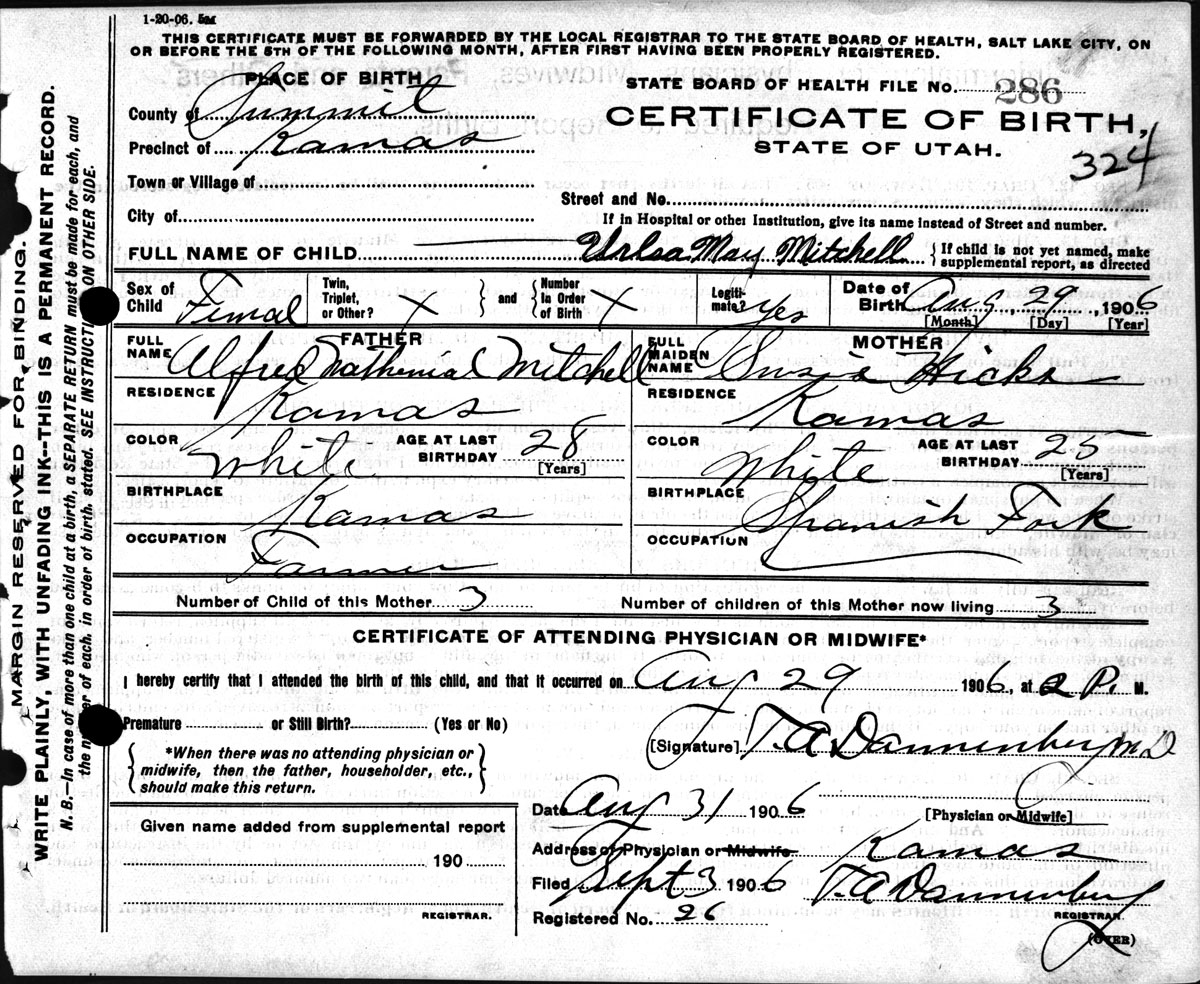 1-20-06. 5M
THIS CERTIFICATE MUST BE FORWARDED BY THE LOCAL REGISTRAR TO THE STATE BOARD OF HEALTH, SALT LAKE CITY, ON
OR BEFORE THE 5TH OF THE FOLLOWING MONTH, AFTER FIRST HAVING BEEN PROPERLY REGISTERED.
PLACE OF BIRTH
County of Summit
Precinct of Kamas
Town or Village of
City of
STATE BOARD OF HEALTH FILE No. 286
CERTIFICATE OF BIRTH,
STATE OF UTAH.
324
Street and No.
If in Hospital or other Institution, give its name instead of Street and number.
FULL NAME OF CHILD Urlsa May Mitchell { If child is not yet named, make
supplemental report, as directed
Sex of Child Femal
Twin, Triplet, or Other? X } and { Number In Order of Birth X
Legitimate? Yes
Date of Birth Aug 29, 1906
[Month] [Day] [Year]
FATHER
FULL NAME Alfred Nathenial Mitchell
RESIDENCE Kamas
COLOR White
AGE AT LAST BIRTHDAY 28 [Years]
BIRTHPLACE Kamas
OCCUPATION Farmer
MOTHER
FULL MAIDEN NAME Susie Hicks
RESIDENCE Kamas
COLOR White
AGE AT LAST BIRTHDAY 25 [Years]
BIRTHPLACE Spanish Fork
OCCUPATION
Number of Child of this Mother 3
Number of children of this Mother now living 3
CERTIFICATE OF ATTENDING PHYSICIAN OR MIDWIFE*
I hereby certify that I attended the birth of this child, and that it occurred on Aug 29 1906, at 2 P. M.
Premature or Still Birth? (Yes or No)
{ *When there was no attending physician or
midwife, then the father, householder, etc.,
should make this return. }
[Signature] T. A Dannenberg M D
[Physician or Midwife]
Date Aug 31 1906
Address of Physician or Midwife Kamas
Filed Sept 3 1906 T. A Dannenberg
REGISTRAR.
Registered No. 26
(OVER)
Given name added from supplemental report
190
REGISTRAR.
MARGIN RESERVED FOR BINDING.
WRITE PLAINLY, WITH UNFADING INK—THIS IS A PERMANENT RECORD.
N. B.—In case of more than one child at a birth, a SEPARATE RETURN must be made for each, and
the number of each, in order of birth, stated. SEE INSTRUCTIONS ON OTHER SIDE.